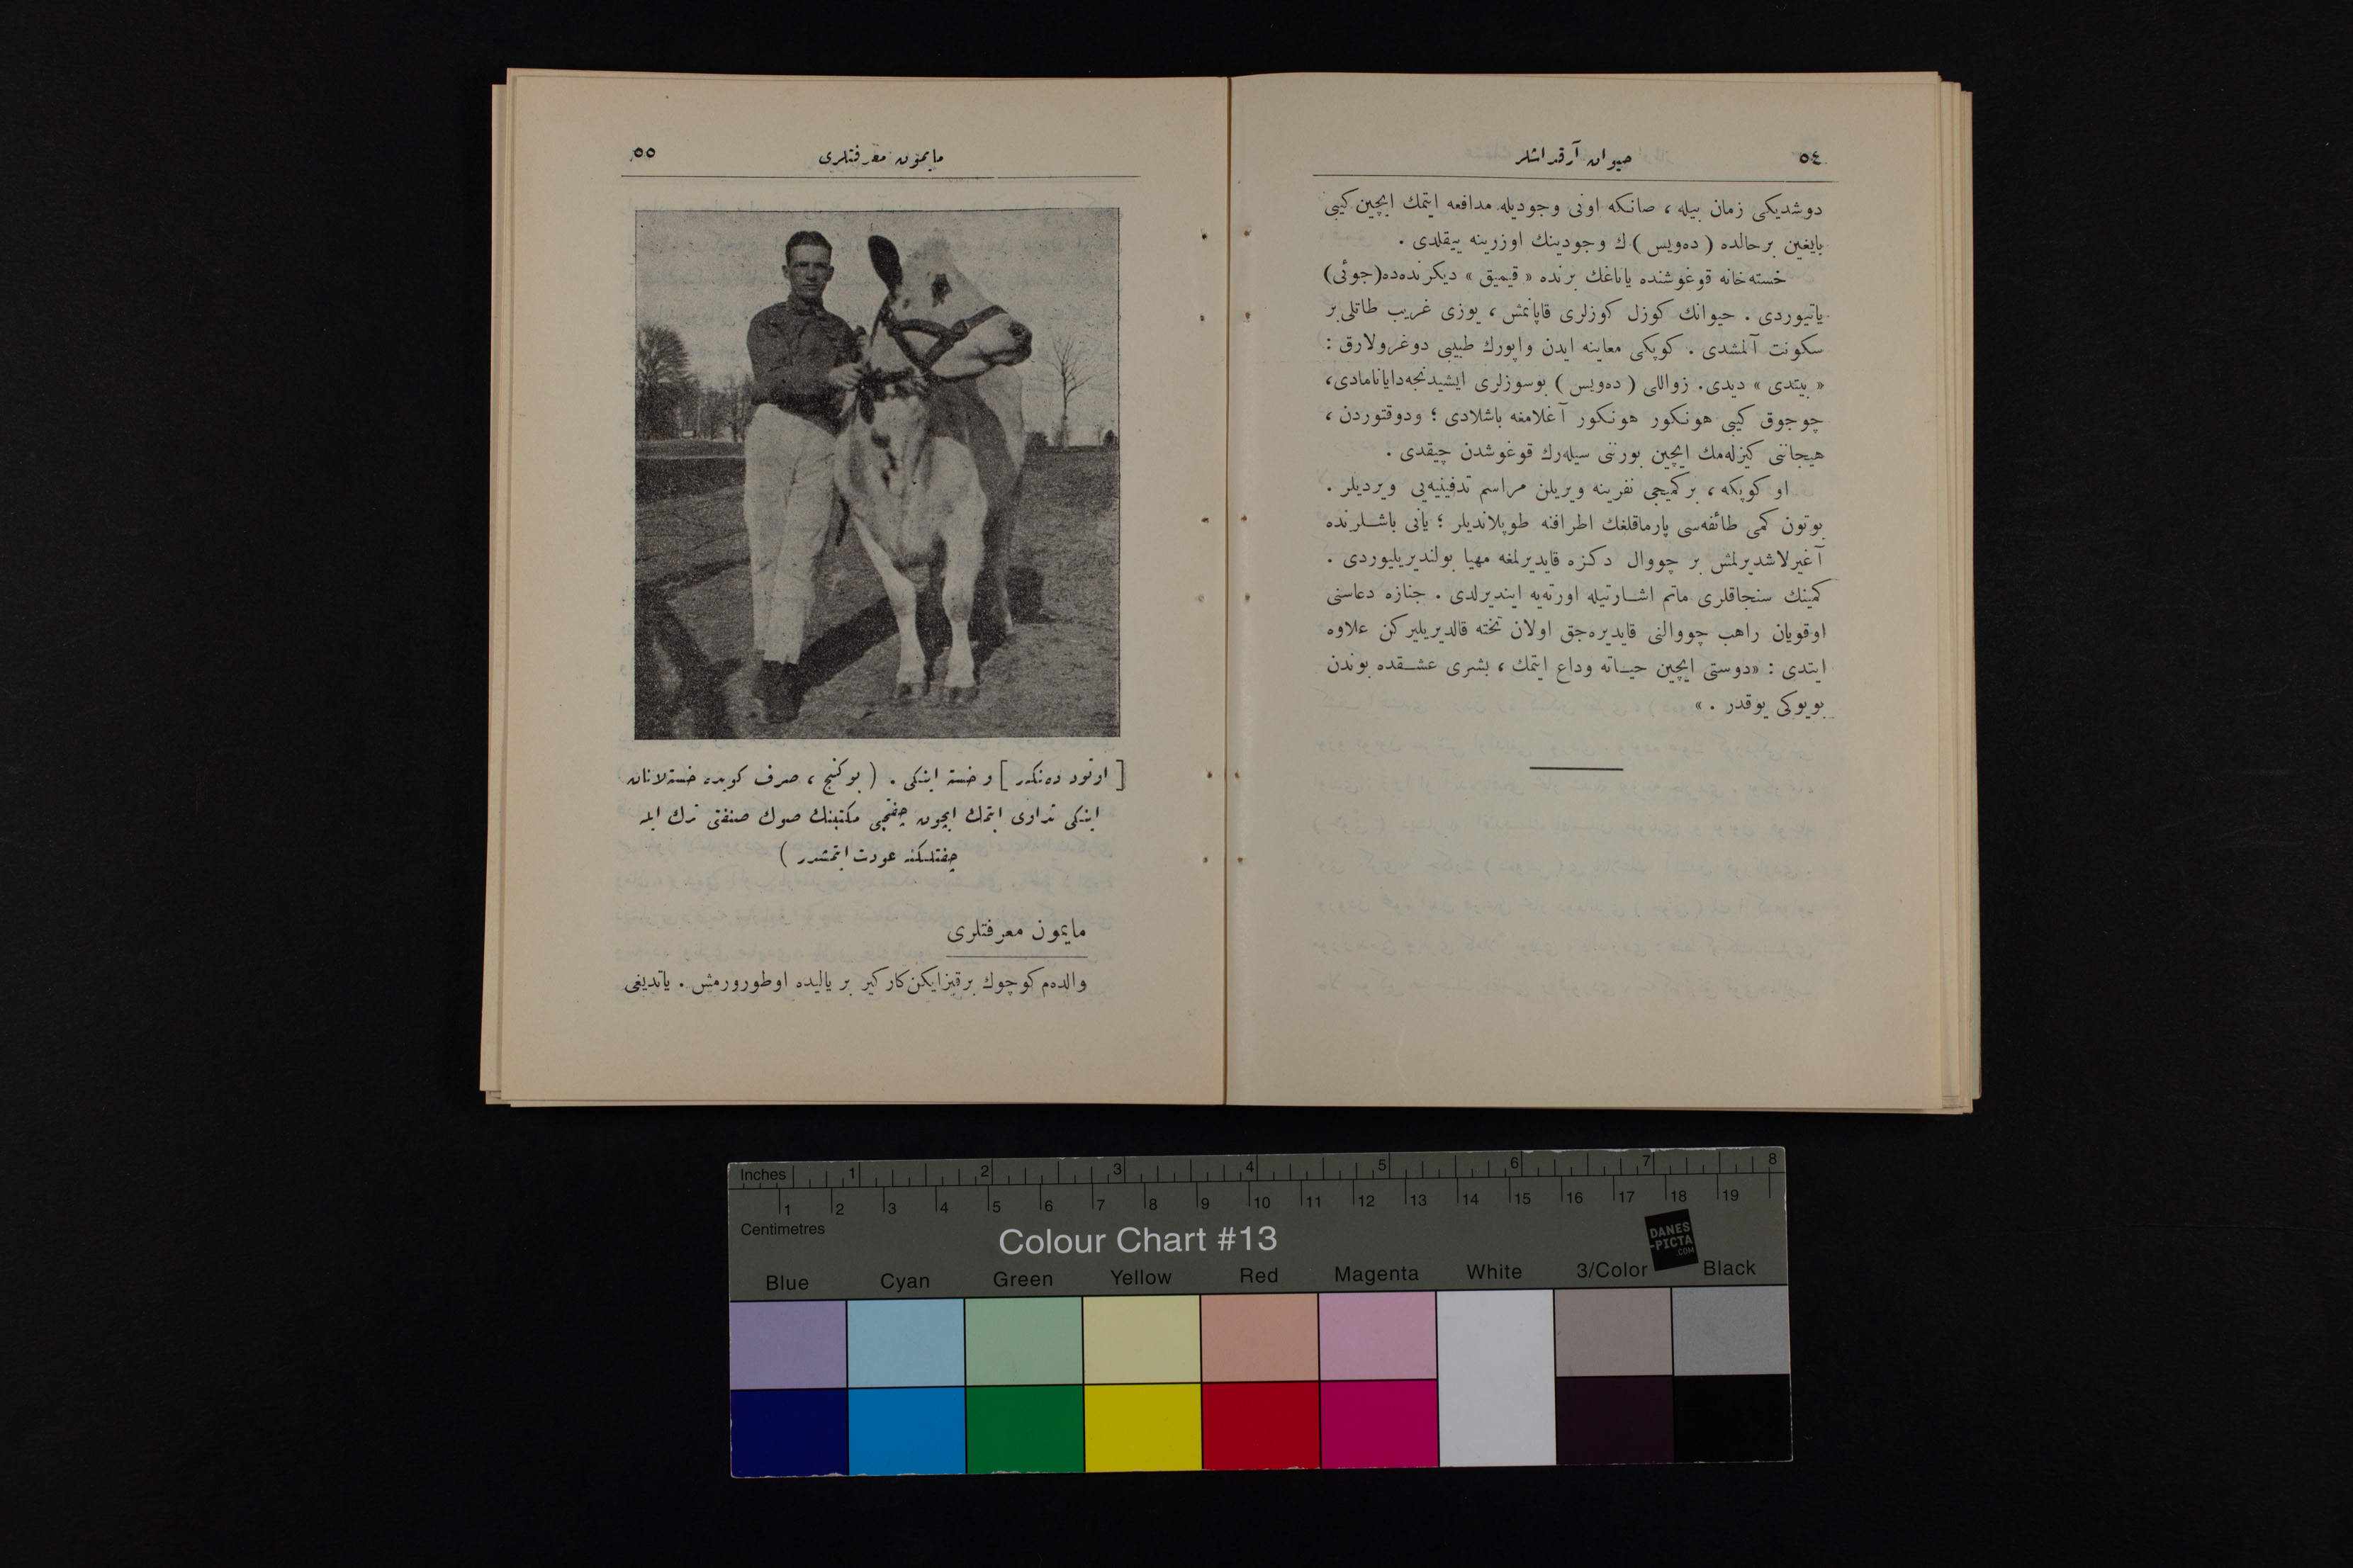 ٥٤
حیوان آرقداشلر
دوشدیكی زمان بیله ، صانكه اونی وجودیله مدافعه ایتمك ایچین كیبی
بایغین برحالده ( ده‌ویس ) ك وجودینك اوزرینه ییقلدی .
خسته‌خانه قوغوشنده یاتاغك برنده « قیمیق » دیكرنده‌ده (جوئی)
یاتیوردی . حیوانك كوزل كوزلری قاپانمش ، یوزی غریب طاتلی بر
سكونت آلمشدی . كوپكی معاینه ایدن واپورك طبیبی دوغرولارق :
« بیتدی » دیدی. زواللی ( ده‌ویس ) بوسوزلری ایشیدنجه‌دایانامادی،
چوجوق كیبی هونكور هونكور آغلامغه باشلادی ؛ ودوقتوردن ،
هیجاننی كیزله‌مك ایچین بورننی سیله‌رك قوغوشدن چیقدی .
او كوپكه ، بركمیجی نفرینه ویریلن مراسم تدفینیه‌یی ویردیلر .
بوتون كمی طائفه‌سی پارماقلغك اطرافنه طوپلاندیلر ؛ یانی باشلرنده
آغیرلاشدیرلمش بر چووال دكزه قایدیرلمغه مهیا بولندیریلیوردی .
كمینك سنجاقلری ماتم اشارتیله اورته‌یه ایندیرلدی . جنازه دعاسنی
اوقویان راهب چووالنی قایدیره‌جق اولان تخته قالدیریلیركن علاوه
ایتدی : «دوستی ایچین حیاته وداع ایتمك ، بشری عشقده بوندن
بویوكی یوقدر . »
مایمون معرفتلری
٥٥
[ اوتود ده‌نكر ] و خسته اینكی . ( بوكنج ، صرف كوبده خسته‌لانان
اینكی تداوی ایتمك ایچون چفتجی مكتبنك صوك صنفنی ترك ایله
چفتلكنه عودت ایتمشدر )
مایمون معرفتلری
والده‌م كوچوك برقیزایكن كاركیر بر یالیده اوطورورمش . یاتدیغی
Inches 1 2 3 4 5 6 7 8
1 2 3 4 5 6 7 8 9 10 11 12 13 14 15 16 17 18 19
Centimetres
Colour Chart #13
DANES
-PICTA
.COM
Blue Cyan Green Yellow Red Magenta White 3/Color Black